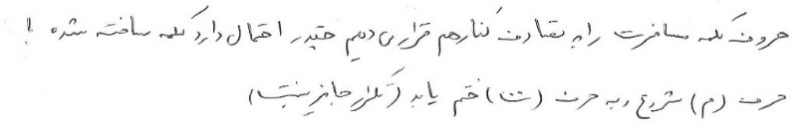 حروف کلمه مسافرت را به تصادف کنار هم قرار می دهیم چقدر احتمال دارد کلمه ساخته شده با
حرف (م) شروع و به حرف (ت) ختم یابد (تکرار جایز نیست)